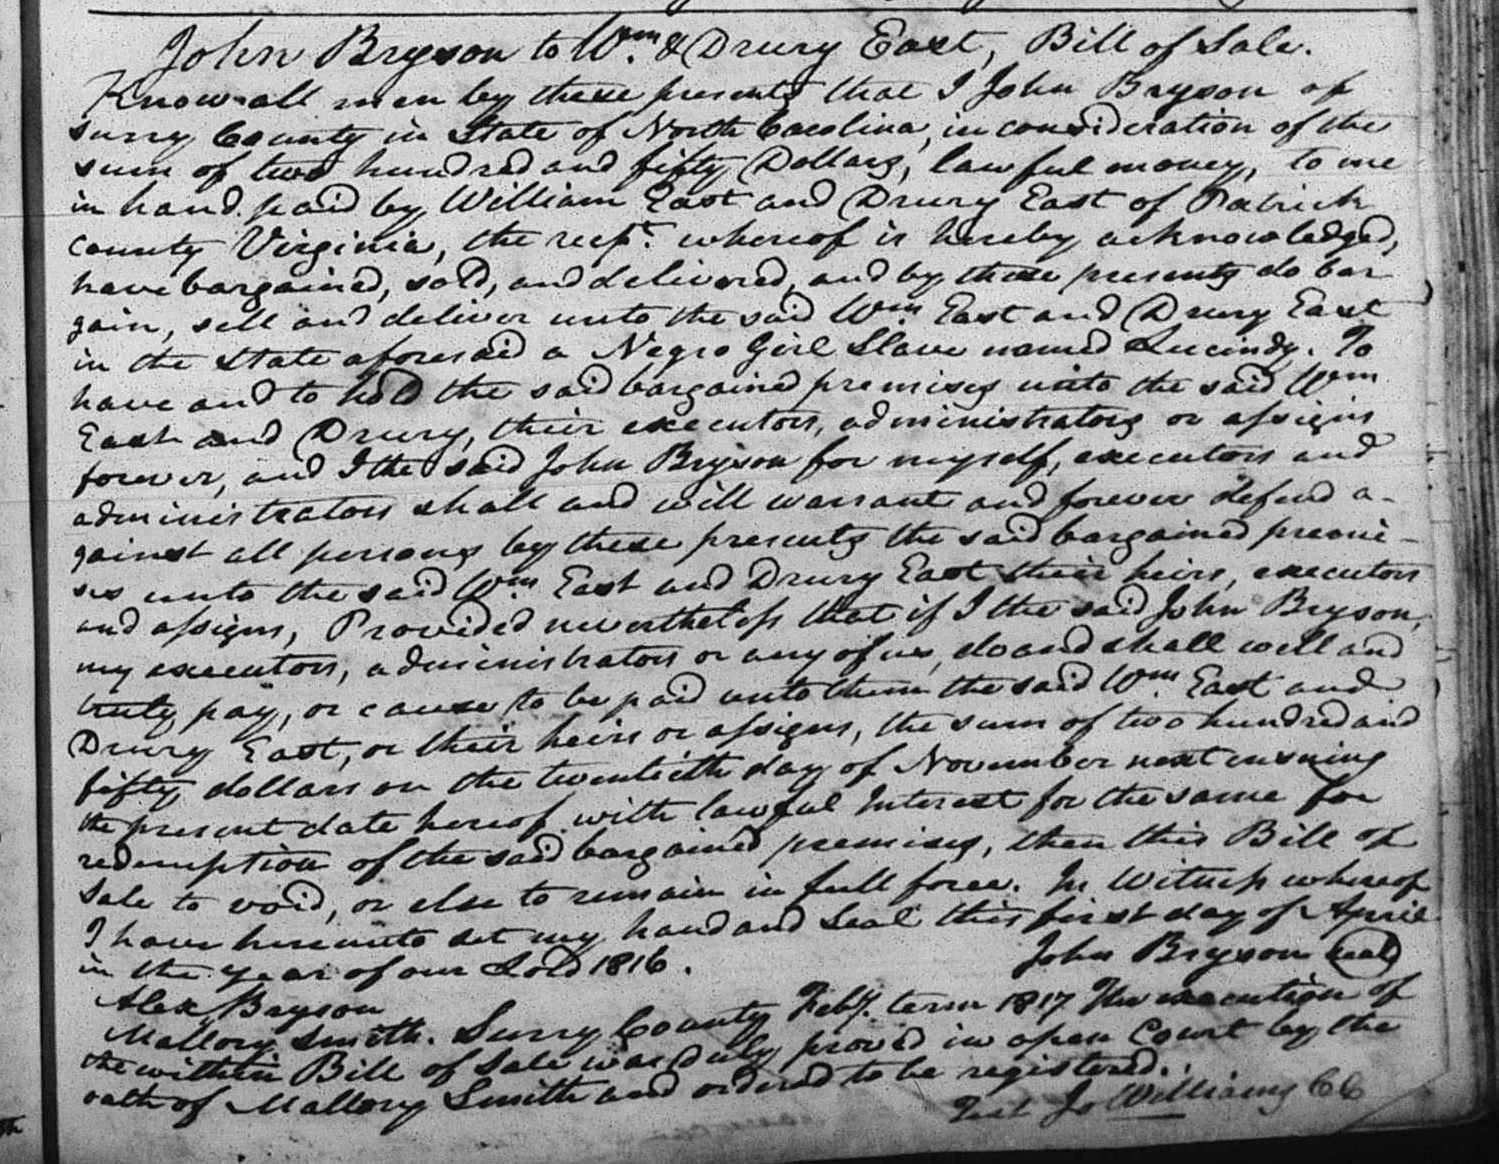 John Bryson to Wm. & Drury East, Bill of Sale.
Know all men by these presents that I John Bryson of
Surry County in State of North Carolina, in consideration of the
sum of two hundred and fifty Dollars, lawful money, to me
in hand paid by William East and Drury East of Patrick
County Virginia, the recpt. whereof is hereby acknowledged,
have bargained, sold, and delivered, and by these presents do bar
gain, sell and deliver unto the said Wm East and Drury East
in the State aforesaid a Negro Girl Slave named Lucindy. To
have and to hold the said bargained premises unto the said Wm
East and Drury, their executors, administrators or assigns
forever, and I the said John Bryson for myself, executors and
administrators shall and will warrant and forever defend a-
gainst all persons by these presents the said bargained premi-
ses unto the said Wm East and Drury East their heirs, executors
and assigns, Provided nevertheless that if I the said John Bryson,
my executors, administrators or any of us, do and shall well and
truly pay, or cause to be paid unto them the said Wm. East and
Drury East, or their heirs or assigns, the sum of two hundred and
fifty dollars on the twentieth day of November next ensuing
the present date hereof with lawful Interest for the same for
redemption of the said bargained premises, then this Bill of
Sale to void, or else to remain in full force. In Witness whereof
I have hereunto set my hand and Seal this first day of April
in the year of our Lord 1816. John Bryson seal
Alex Bryson
Mallory Smith. Surry County Feby. term 1817 The execution of
the within Bill of Sale was duly proved in open Court by the
oath of Mallory Smith and ordered to be registered.
Test Jo Williams CC